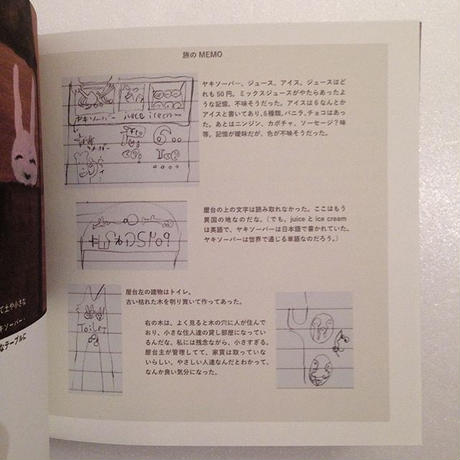 旅の MEMO
ヤキソーバー、ジュース、アイス。ジュースはど
れも50円。ミックスジュースがやたらあったよ
うな記憶。不味そうだった。アイスは6なんとか
アイスと書いてあり、6種類。バニラ、チョコはあっ
た。あとはニンジン、カボチャ、ソーセージ？味
等。記憶が曖昧だが、色が不味そうだった。
ヤキソーバー
juice
ice cream
屋台の上の文字は読み取れなかった。ここはもう
異国の地なのだな。（でも、juice と ice cream
は英語で、ヤキソーバーは日本語で書かれていた。
ヤキソーバーは世界で通じる単語なのだろう。）
屋台左の建物はトイレ。
古い枯れた木を刳り貫いて作ってあった。
Toilet
右の木は、よく見ると木の穴に人が住んで
おり、小さな住人達の貸し部屋になってい
るんだな。私には残念ながら、小さすぎる。
屋台主が管理してて、家賃は取っていな
いらしい。やさしい人達なんだとわかって、
なんか良い気分になった。
て土や小さな
キソーバー、
なテーブルに